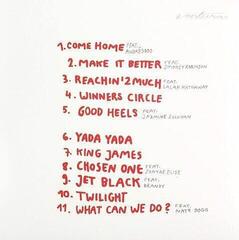 1. COME HOME FEAT. ANDRÉ 3000
2. MAKE IT BETTER FEAT. SMOKEY ROBINSON
3. REACHIN' 2 MUCH FEAT. LALAH HATHAWAY
4. WINNERS CIRCLE
5. GOOD HEELS FEAT. JAZMINE SULLIVAN
6. YADA YADA
7. KING JAMES
8. CHOSEN ONE FEAT.
9. JET BLACK FEAT. BRANDY
10. TWILIGHT
11. WHAT CAN WE DO? FEAT. NATE DOGG